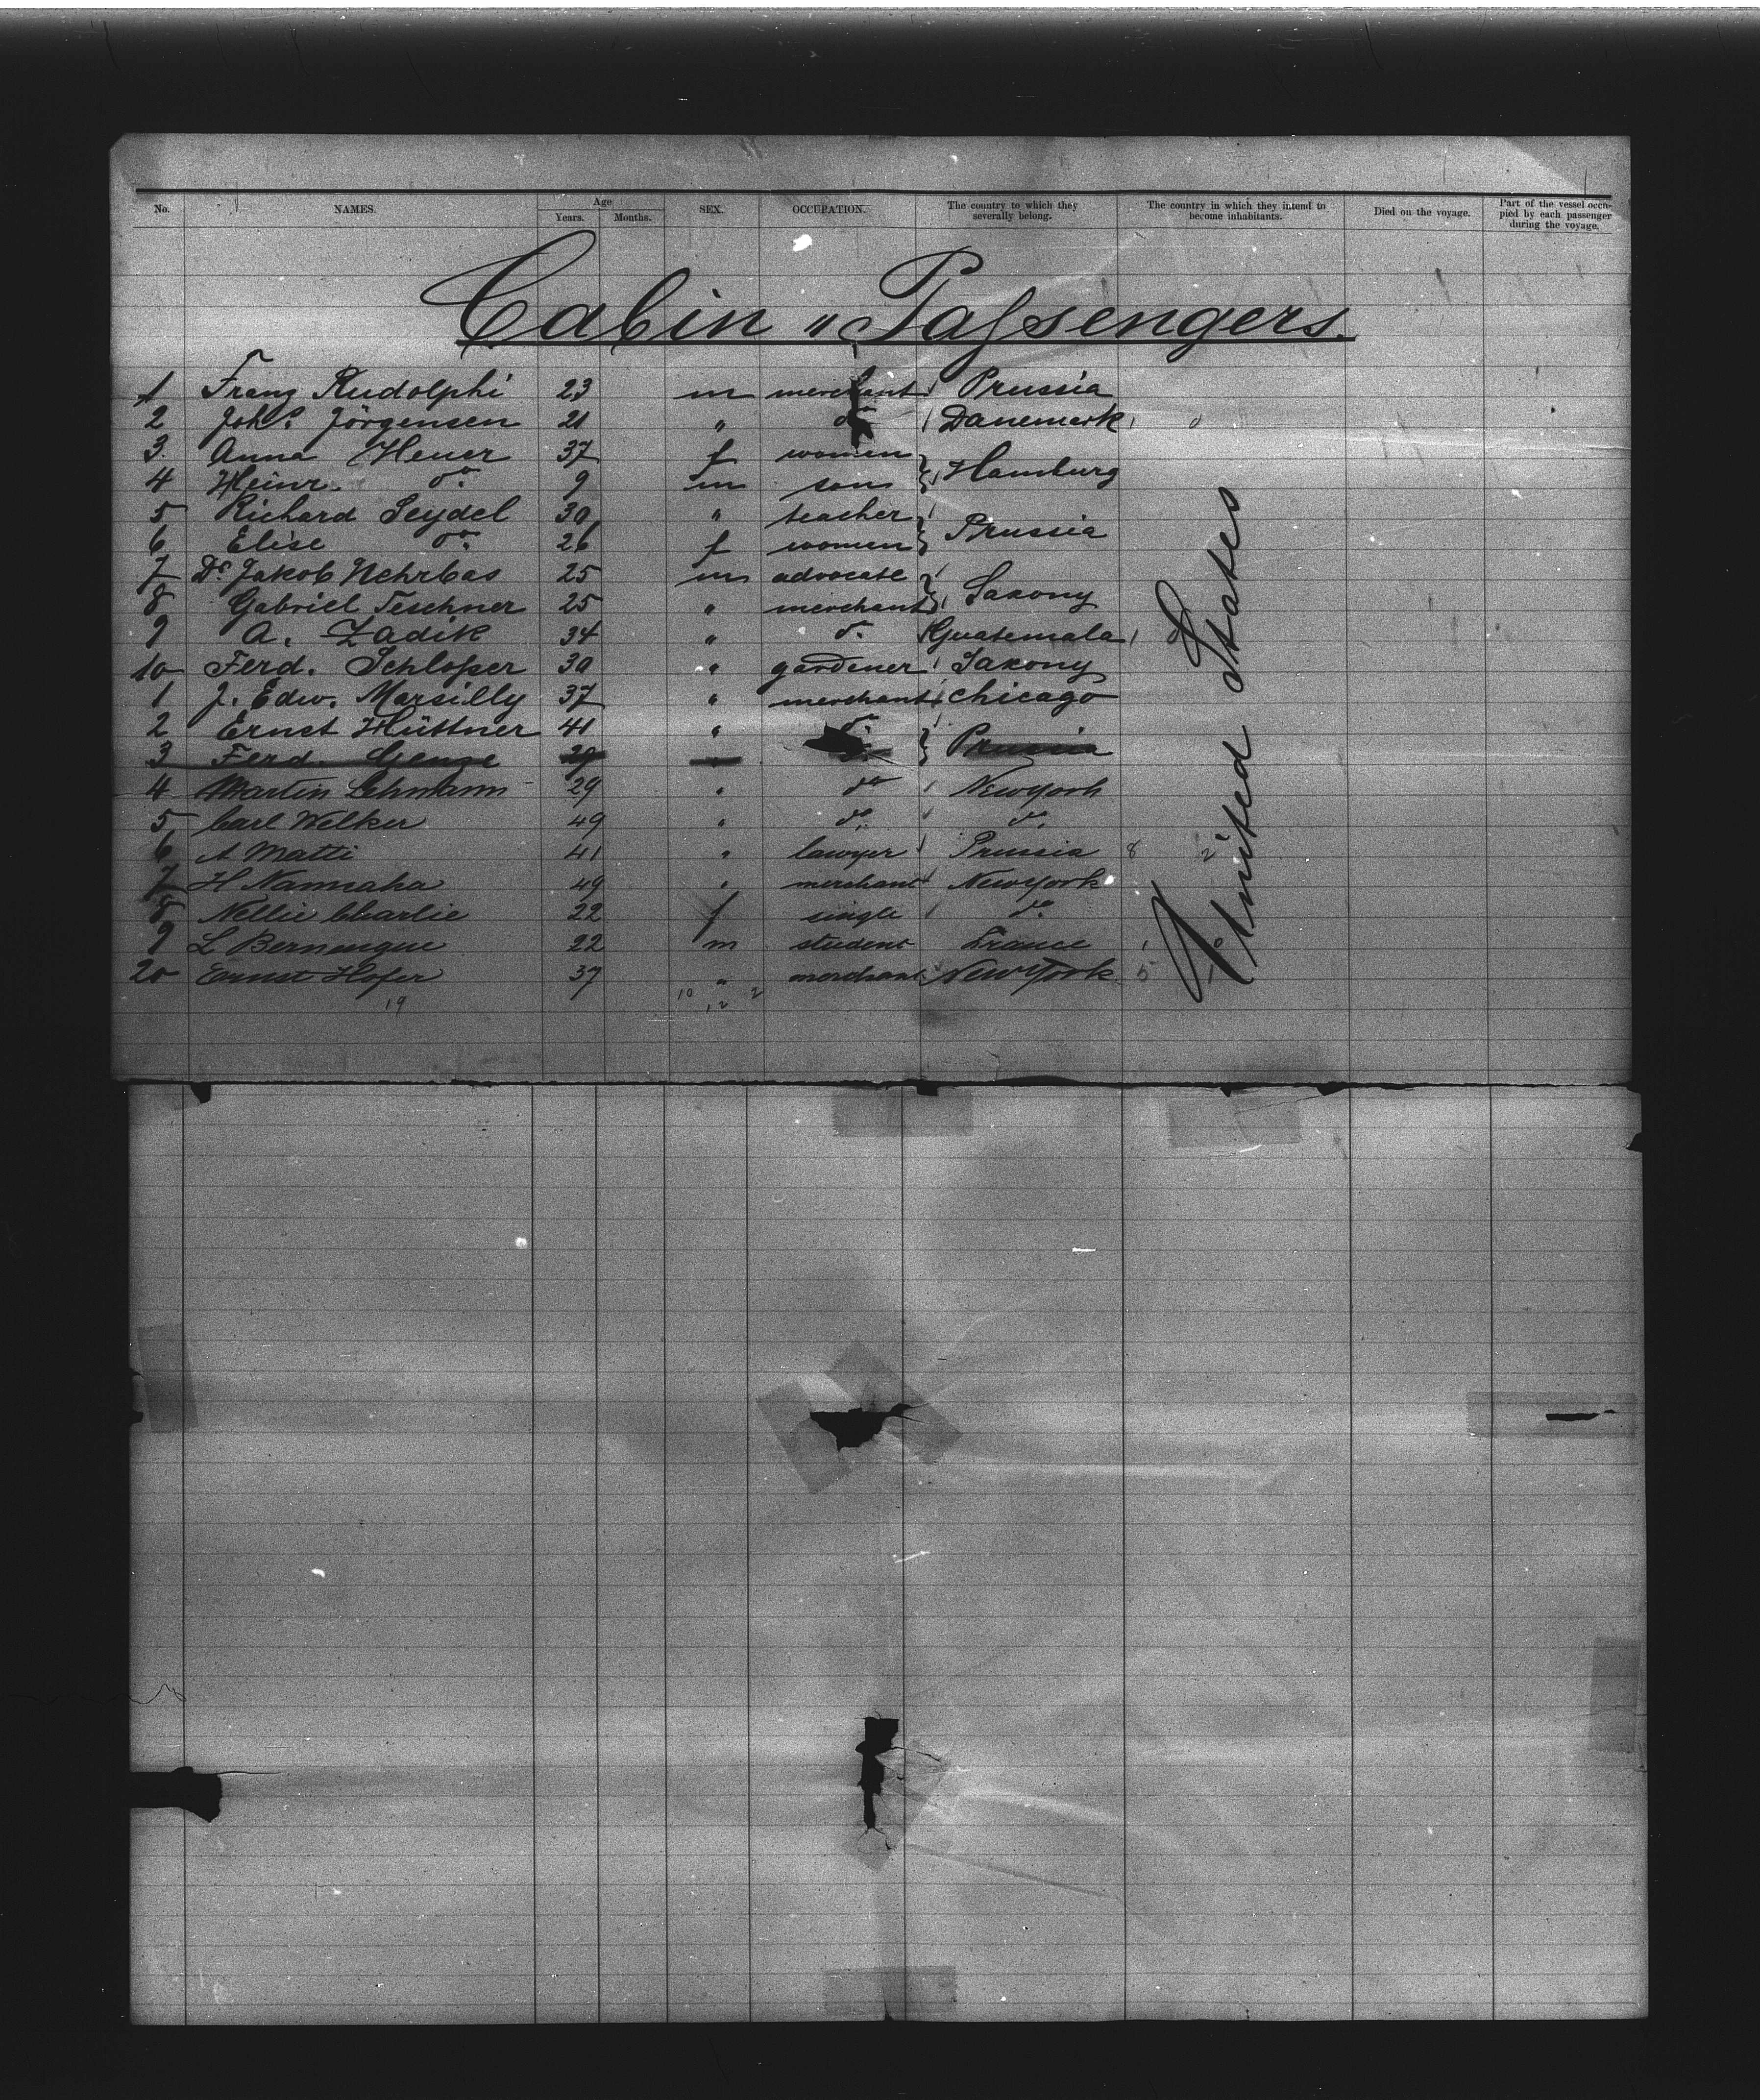 No. NAMES. Age Years. Months. SEX. OCCUPATION. The country to which they severally belong. The country in which they intend to become inhabitants. Died on the voyage. Part of the vessel occupied by each passenger during the voyage.
Cabin „ Passengers.
1 Franz Rudolphi 23 m merchant Prussia
2 Johs. Jörgensen 21 " do Danemark
3 Anna Heuer 37 f women
4 Heinr. do. 9 m son Hamburg
5 Richard Seydel 30 " teacher
6 Elise do. 26 f women Prussia
7 Dr Jakob Nehrbas 25 m advocate
8 Gabriel Teschner 25 " merchant Saxony
9 A. Zadik 34 " do. Guatemala
10 Ferd. Schlosser 30 " gardener Saxony
1 J. Edw. Marsilly 37 " merchant Chicago
2 Ernst Hüttner 41 " do
3 Ferd. Genze Prussia
4 Martin Lehmann 29 " do Newyork
5 Carl Welker 49 " do. do.
6 A Matti 41 " lawyer Prussia 8 2
7 H 49 " merchant Newyork
8 Nellie Charlie 22 f single do.
9 L 22 m student France 1
20 Ernst Hofer 37 " merchant New York 5
19 10 12 2
United States